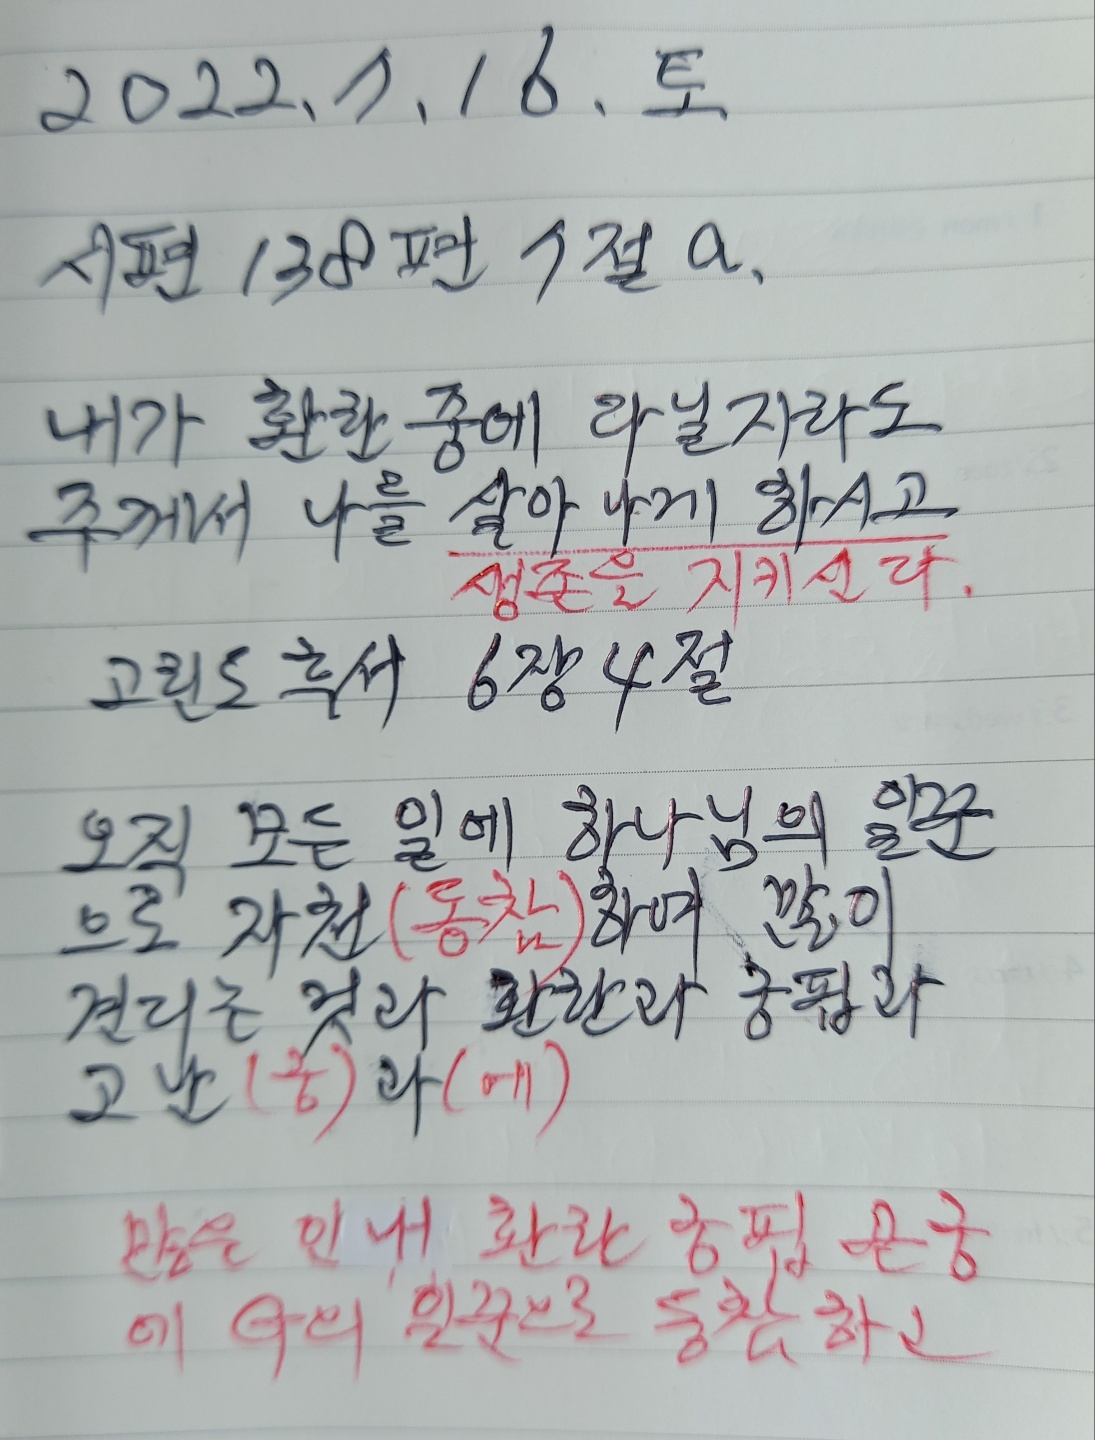 2022. 7. 16. 토
시편 138편 7절 a.
내가 환란 중에 다닐지라도
주께서 나를 살아 나게 하시고
생존을 지키신다.
고린도 후서 6장 4절
오직 모든 일에 하나님의 일꾼
으로 자천(동참)하여 많이
견디는 것과 환란과 궁핍과
고난(중)과(에)
많은 인내 환란 궁핍 곤궁
에 일꾼으로 동참하고